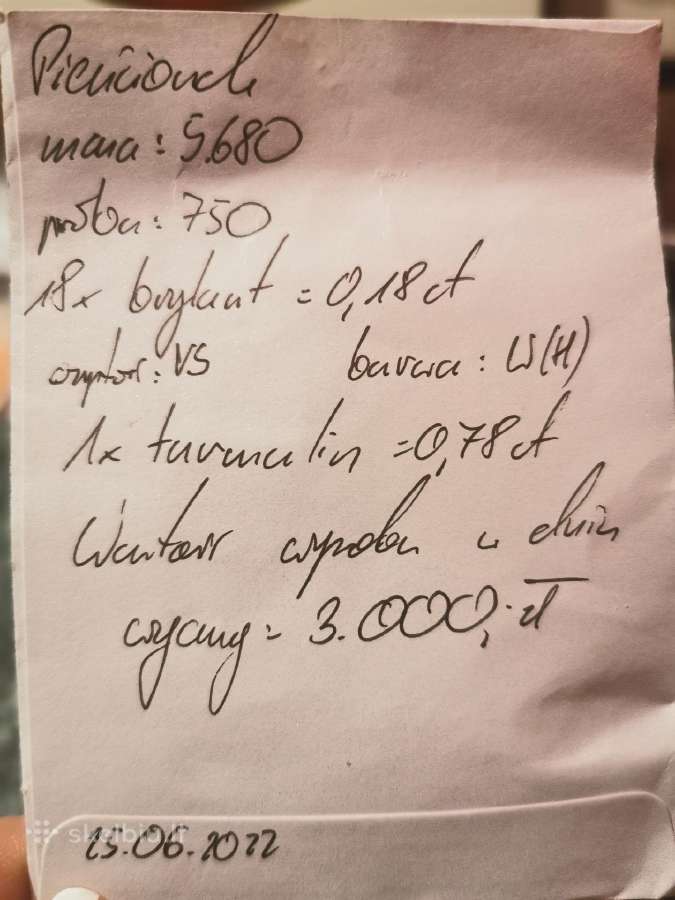 Pierścionek
masa: 5.680
próba: 750
18x brylant = 0,18 ct
czystość: VS barwa: W(H)
1x turmalin = 0,78 ct
Wartość wyrobu w dniu
wyceny = 3.000,- zł
skelbiu.lt
15.06.2022